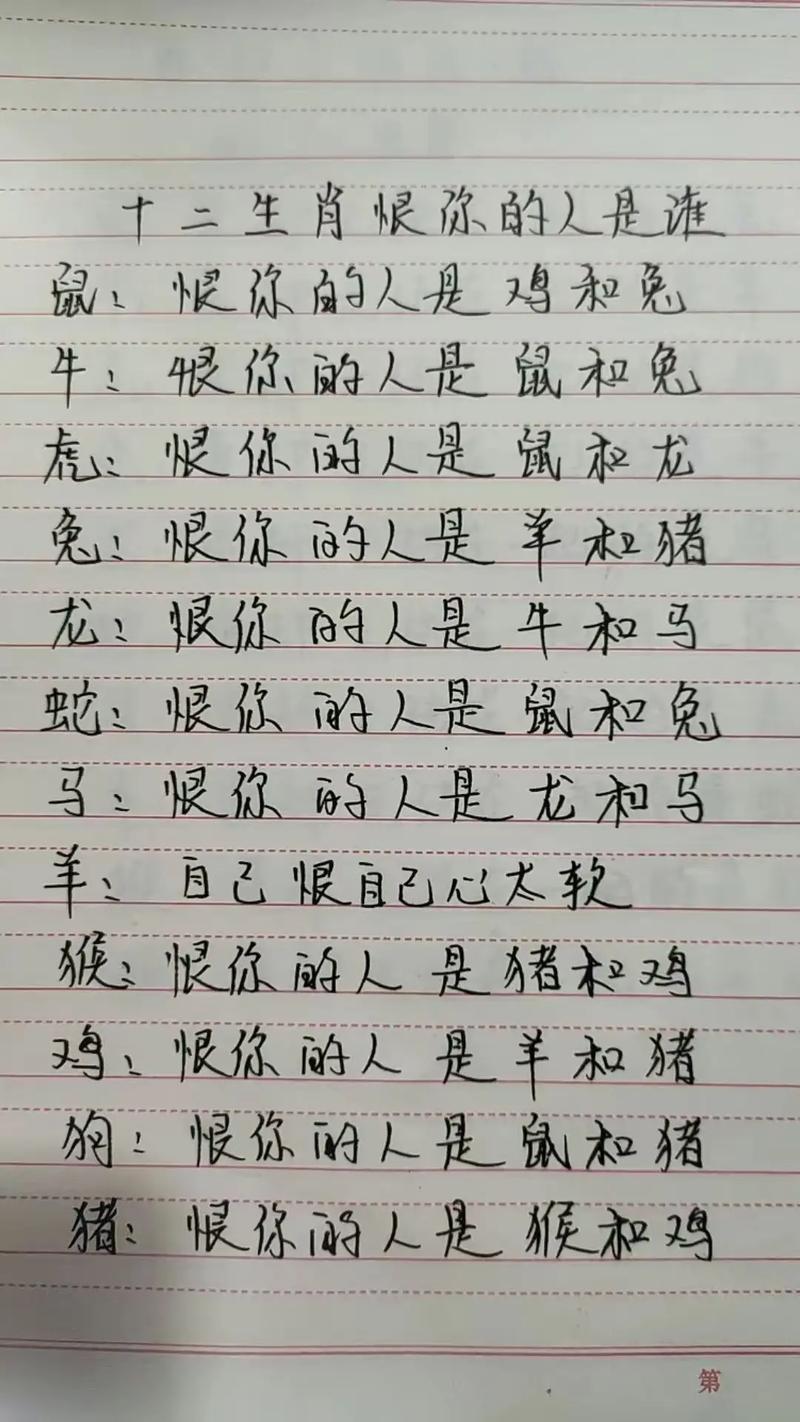 十二生肖恨你的人是谁
鼠：恨你的人是鸡和兔
牛：恨你的人是鼠和兔
虎：恨你的人是鼠和龙
兔：恨你的人是羊和猪
龙：恨你的人是牛和马
蛇：恨你的人是鼠和兔
马：恨你的人是龙和马
羊：自己恨自己心太软
猴：恨你的人是猪和鸡
鸡：恨你的人是羊和猪
狗：恨你的人是鼠和猪
猪：恨你的人是猴和鸡
第